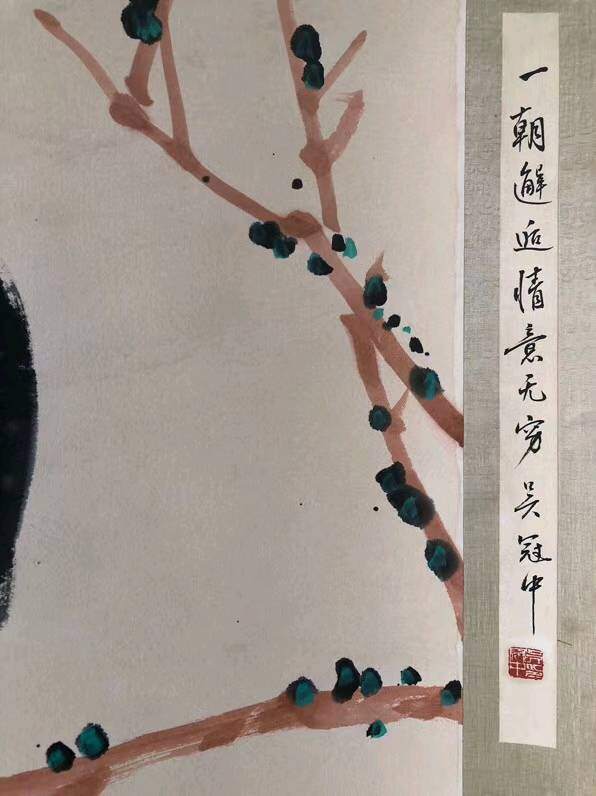 一朝邂逅情意无穷 吴冠中